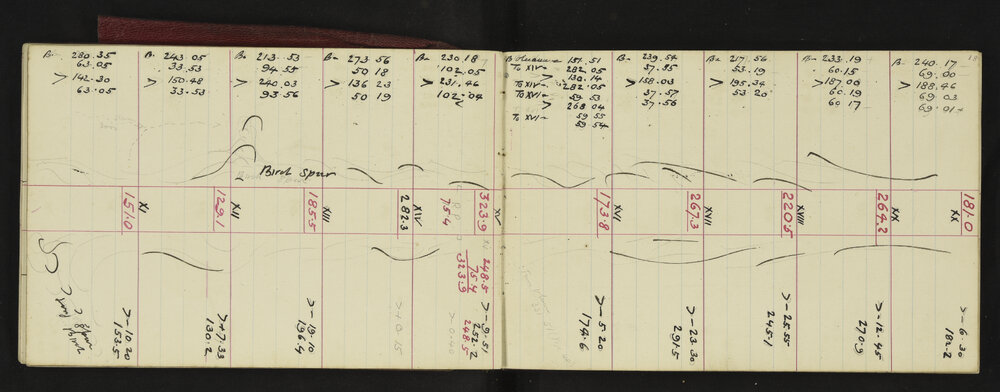 B- 280.35
63.05
> 142.30
63.05
B- 243 05
33.53
> 150.48
33.53
B- 213 53
94 55
> 240 03
93.56
B- 273 56
50 18
> 136 23
50 19
B- 230 18
102.05
> 231.46
102.04
151.51
To XIV- 282 05
> 130.14
To XIV- 282.05
59 53
> 268 04
To XVI- 59 55
59 54
B- 239.54
37.55
> 158.03
37.57
37.56
B- 217.56
53.19
> 195.34
53 20
B- 233.19
60.15
> 187.04
60.19
60 17
B- 240 17
69.00
> 188.46
69 03
69.01
18
Birch Spur
151.0
XI
129.1
XII
185.5
XIII
282.3
XIV
75.4
323.9
XV
173.8
XVI
267.3
XVII
220.5
XVIII
264.2
XX
181.0
XX
248.5
75.4
323.9
>-10.20
153.5
>+7.33
130.2
>-19.10
196.4
>-10.15
>-9.51
252.2
248.5
>-5.20
174.6
>-23.30
291.5
>-25.55
245.1
>-12.45
270.9
>-6.30
182.2